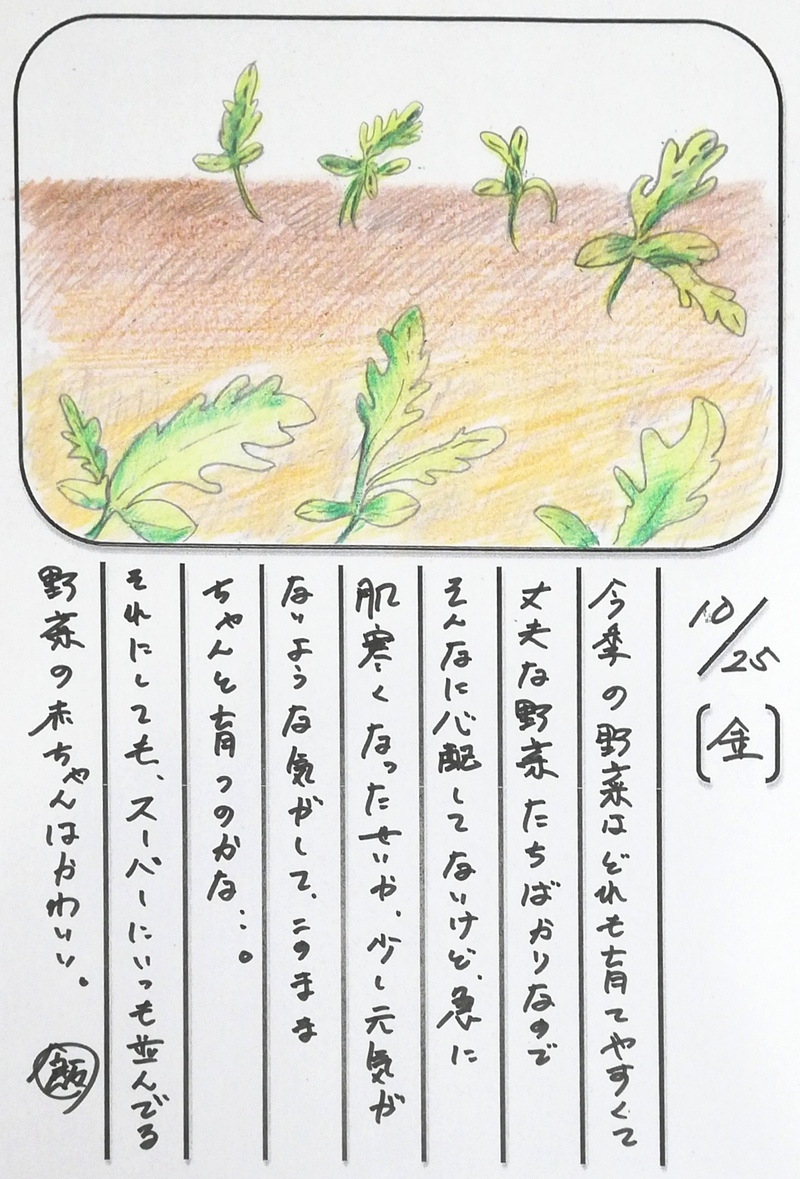 10/25
〔金〕
今季の野菜はどれも育てやすくて
丈夫な野菜たちばかりなので
そんなに心配してないけど、急に
肌寒くなったせいか、少し元気が
ないような気がして、このまま
ちゃんと育つのかな…。
それにしても、スーパーにいつも並んでる
野菜の赤ちゃんはかわいい。
飯